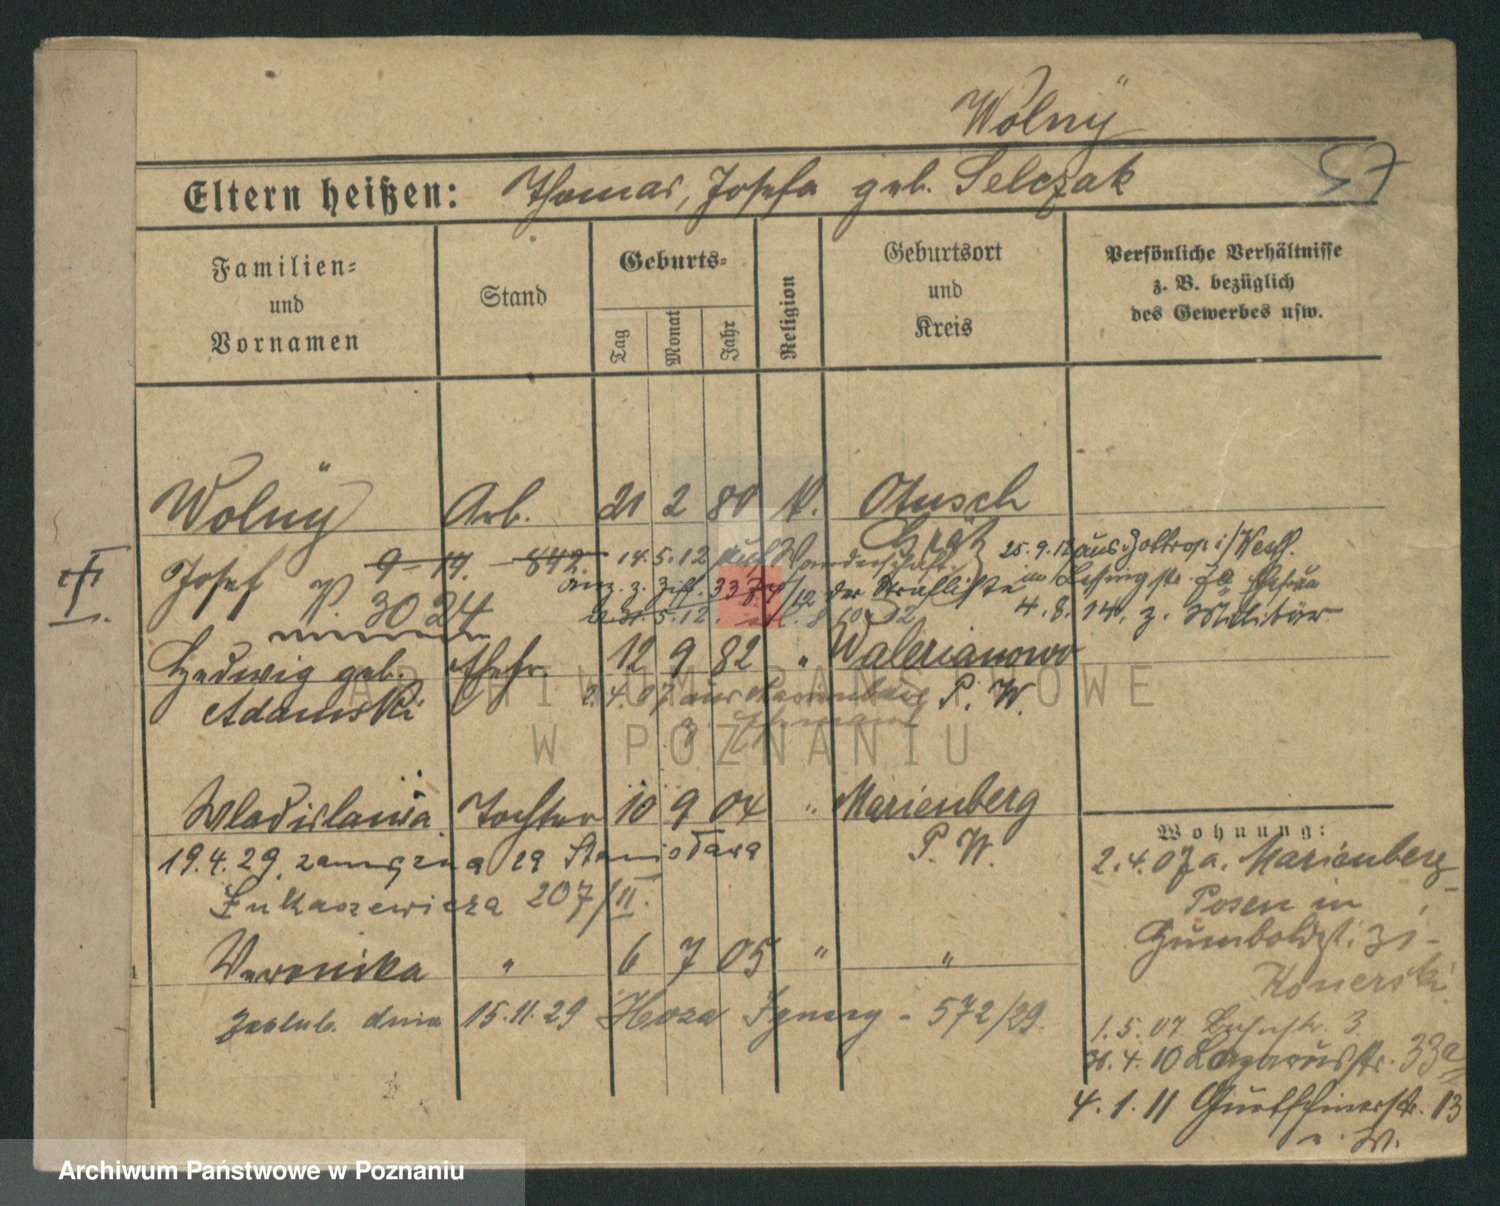 Wolnÿ
57
Eltern heißen: Thomas, Josefa geb. Selczak
Familien= und Vornamen
Stand
Geburts=
Tag
Monat
Jahr
Religion
Geburtsort und Kreis
Persönliche Verhältnisse z. B. bezüglich des Gewerbes usw.
Wolnÿ Arb. 21 2 80 K. Otusch
Josef 9-19. 842. 14.5.12 auf Wanderschaft. 25.9.12 aus Bottrop i/Westf.
III.
P. 3024 der Strafliste
4.8.14. z. Militär
Hedwig geb. Ehefr. 12 9 82 " Walerianowo
Adamski 2.4.07 aus Marienberg P. W.
z. Ehemann
Wladislawa Tochter 10 9 04 " Marienberg
19.4.29. zamężna za Stanisława P. W.
Łukaszewicza 207/II.
Veronika " 6 7 05 " "
zaślub. dnia 15.11.29 Hoza Ignacy - 572/29.
Wohnung:
2.4.07 a. Marienberg
Posen in
Gumboldst. 31
Konerski
1.5.07. 3
30.4.10 Lazarusstr. 33a
4.1.11 13
n. W.
ARCHIWUM PAŃSTWOWE
W POZNANIU
Archiwum Państwowe w Poznaniu